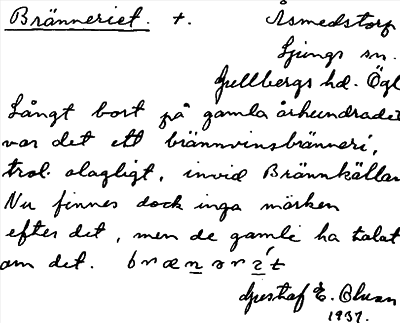 Bränneriet. +. Åsmedstorp
Ljungs sn.
Gullbergs hd. Ögl
Långt bort på gamla århundradet
var det ett brännvinsbränneri,
trol. olagligt, invid Brännkällan
Nu finnes dock inga märken
efter det, men de gamle ha talat
om det.
Gustaf E.
1937.